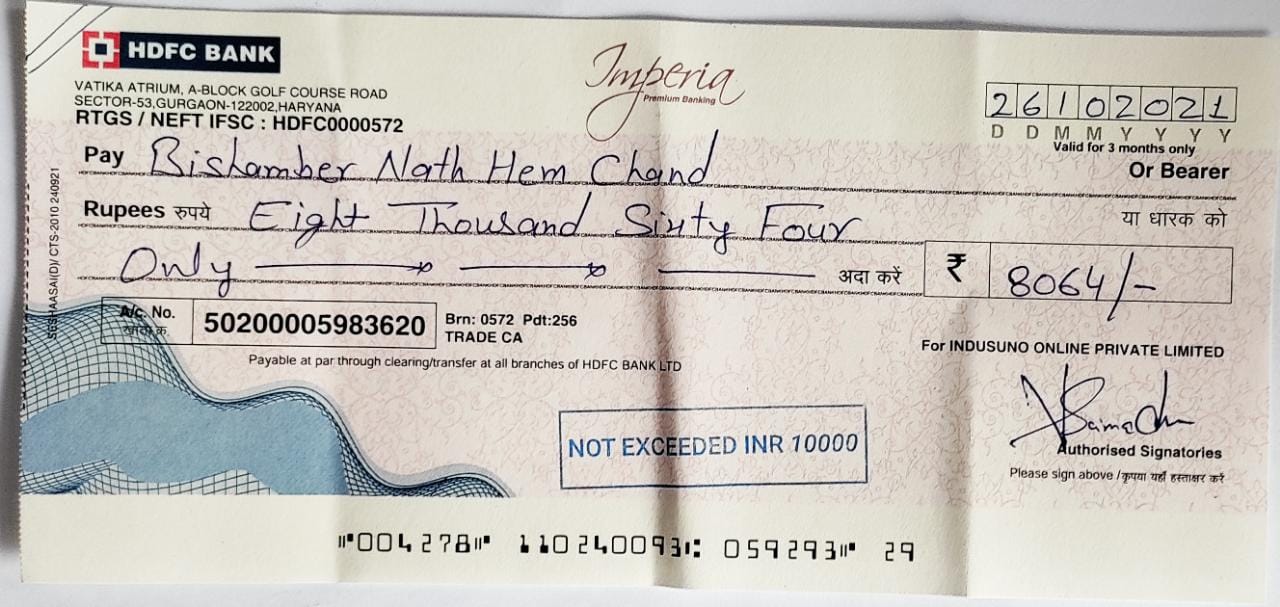 HDFC BANK
Imperia
Premium Banking
VATIKA ATRIUM, A-BLOCK GOLF COURSE ROAD
SECTOR-53,GURGAON-122002,HARYANA
RTGS / NEFT IFSC : HDFC0000572
26102021
D D M M Y Y Y Y
Valid for 3 months only
Pay Bishamber Nath Hem Chand Or Bearer
Rupees रुपये Eight Thousand Sixty Four या धारक को
Only अदा करें ₹ 8064/-
A/c. No. 50200005983620
Brn: 0572 Pdt:256
TRADE CA
Payable at par through clearing/transfer at all branches of HDFC BANK LTD
For INDUSUNO ONLINE PRIVATE LIMITED
NOT EXCEEDED INR 10000
Authorised Signatories
Please sign above /कृपया यहाँ हस्ताक्षर करें
⑈004278⑈ 110240093⑆ 059293⑈ 29
CTS-2010 240921